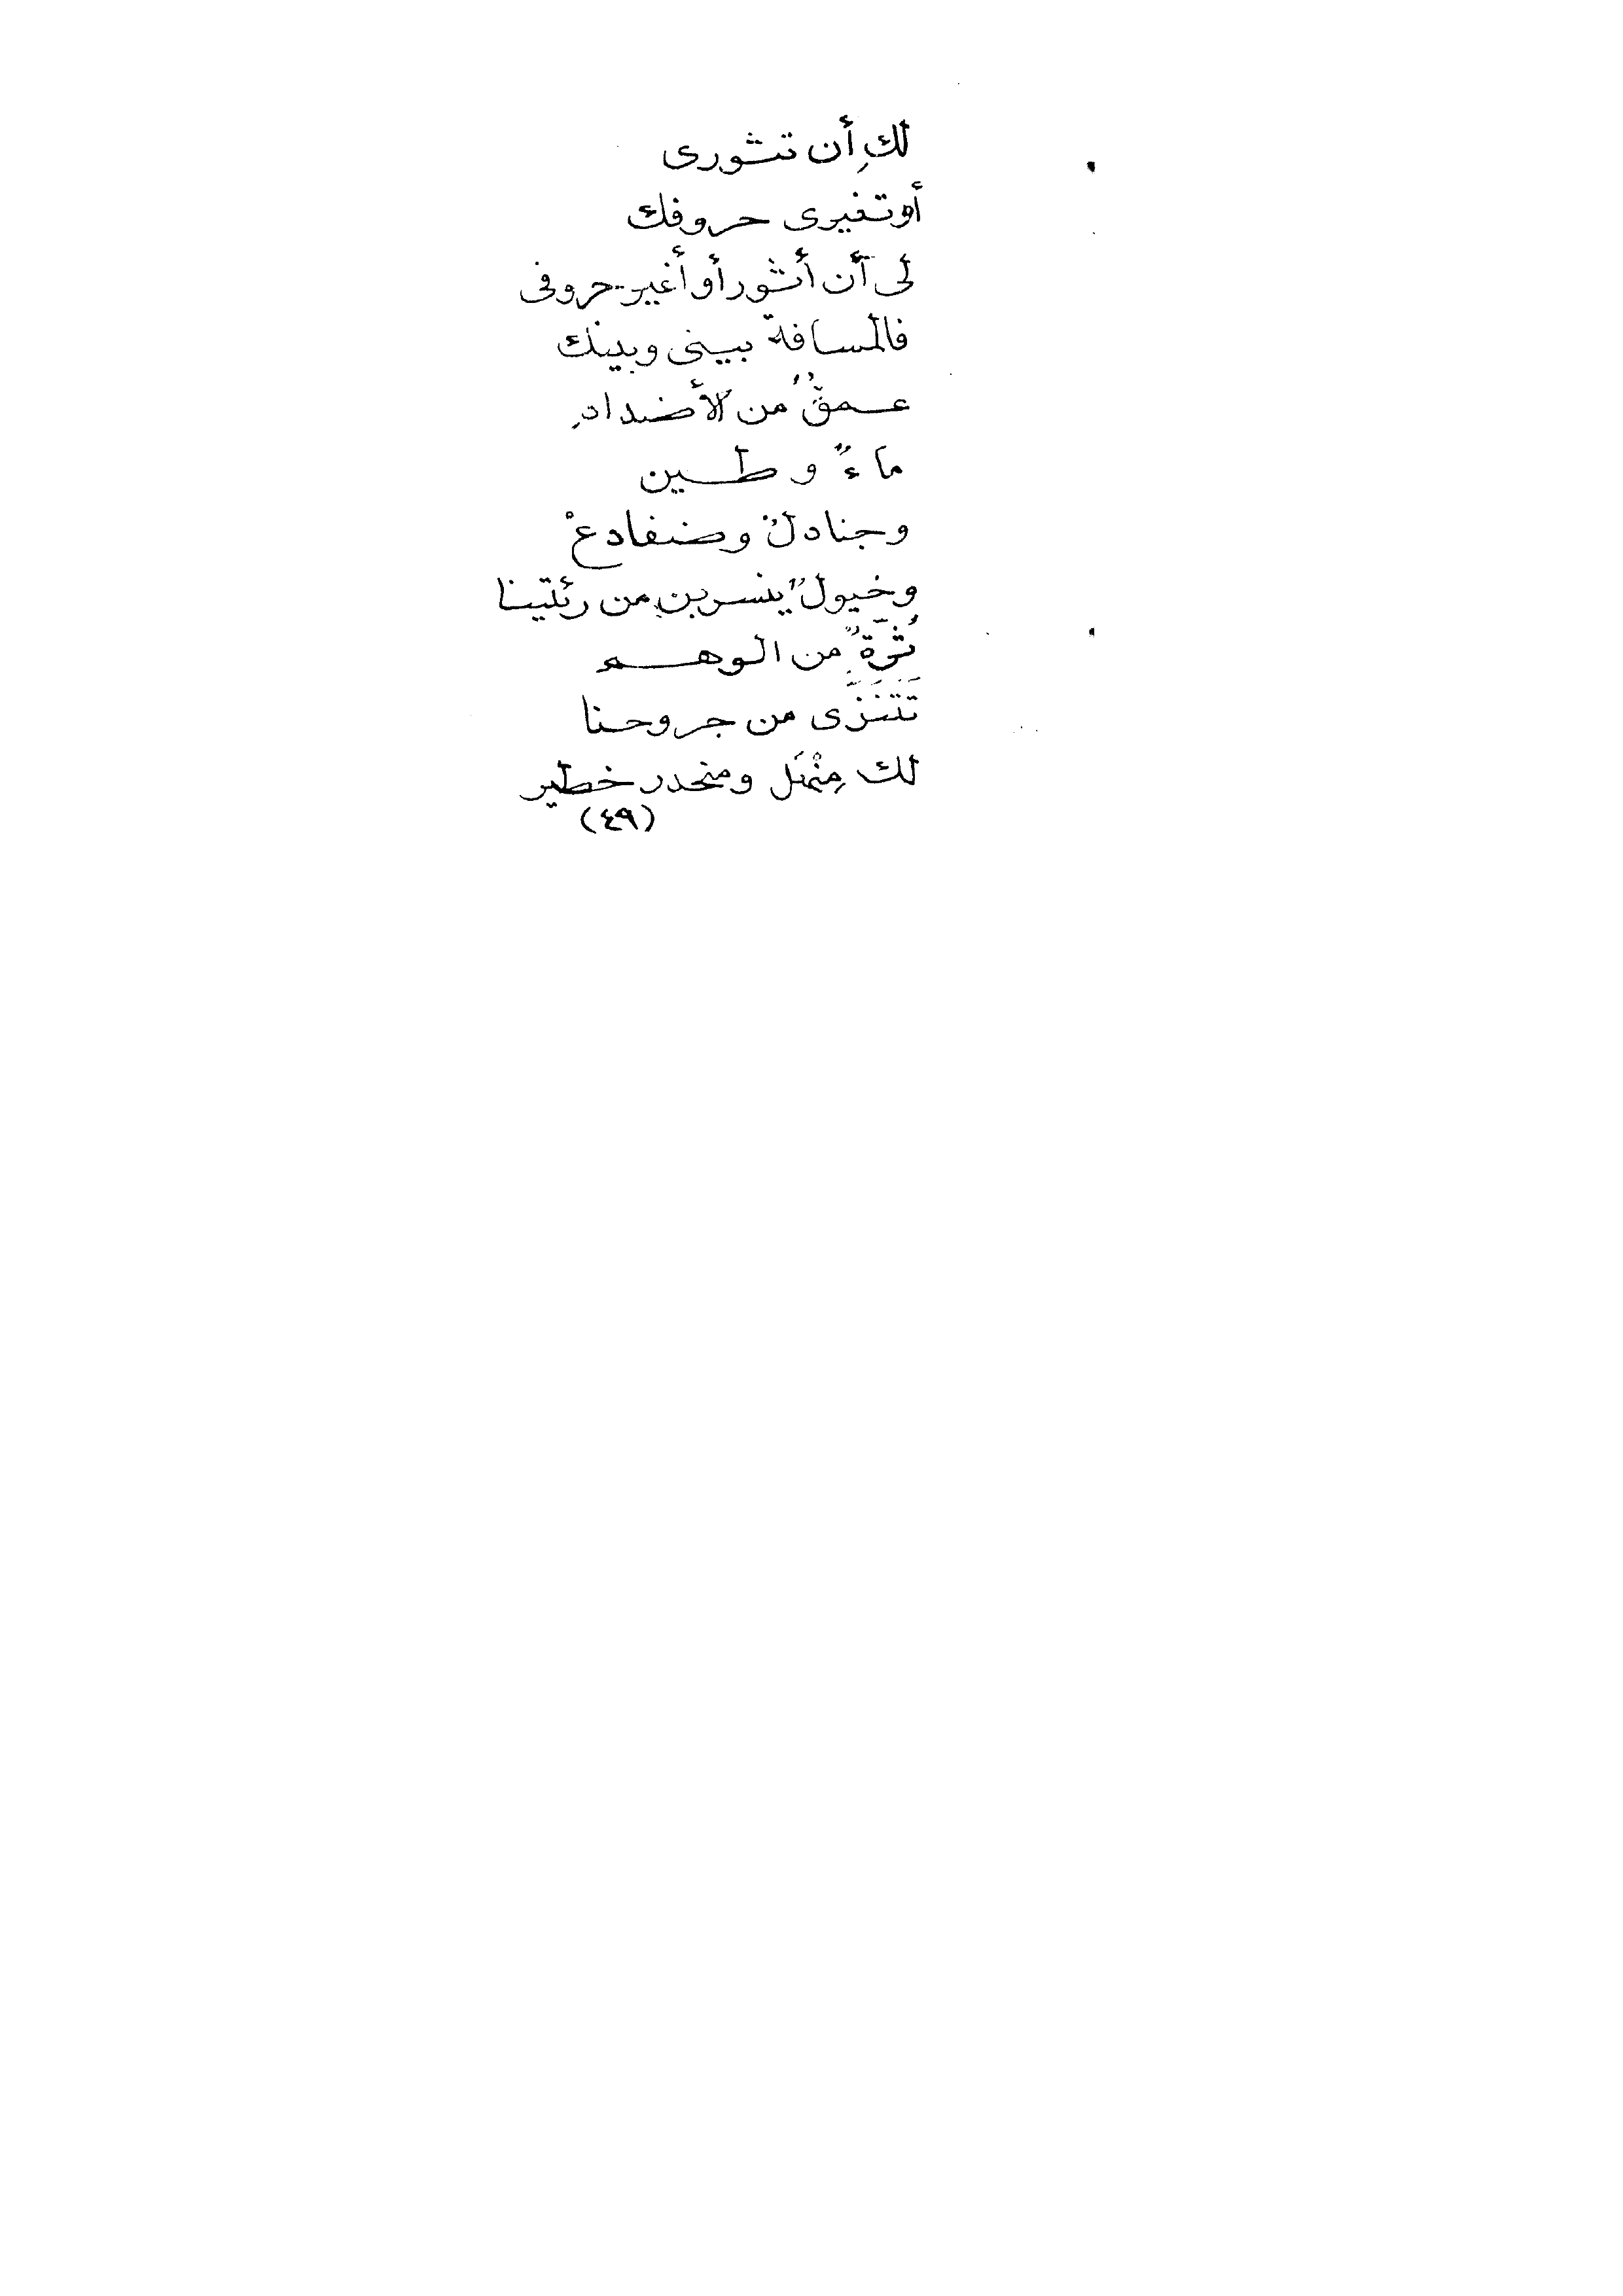 لكِ أن تثورى
أو تغيرى حروفك
لى أن أثور أو أغير حروفى
فالمسافة بينى وبينك
عمقٌ من الأضدادِ
ماءٌ وطين
وجنادلٌ وضفادعْ
وخيولٌ ينسربن من رئتينا
ثرةٌ من الوهم
تَتَنَزَّى من جروحنا
لك مِنْهَل ومنحدر خطير
(٤٩)